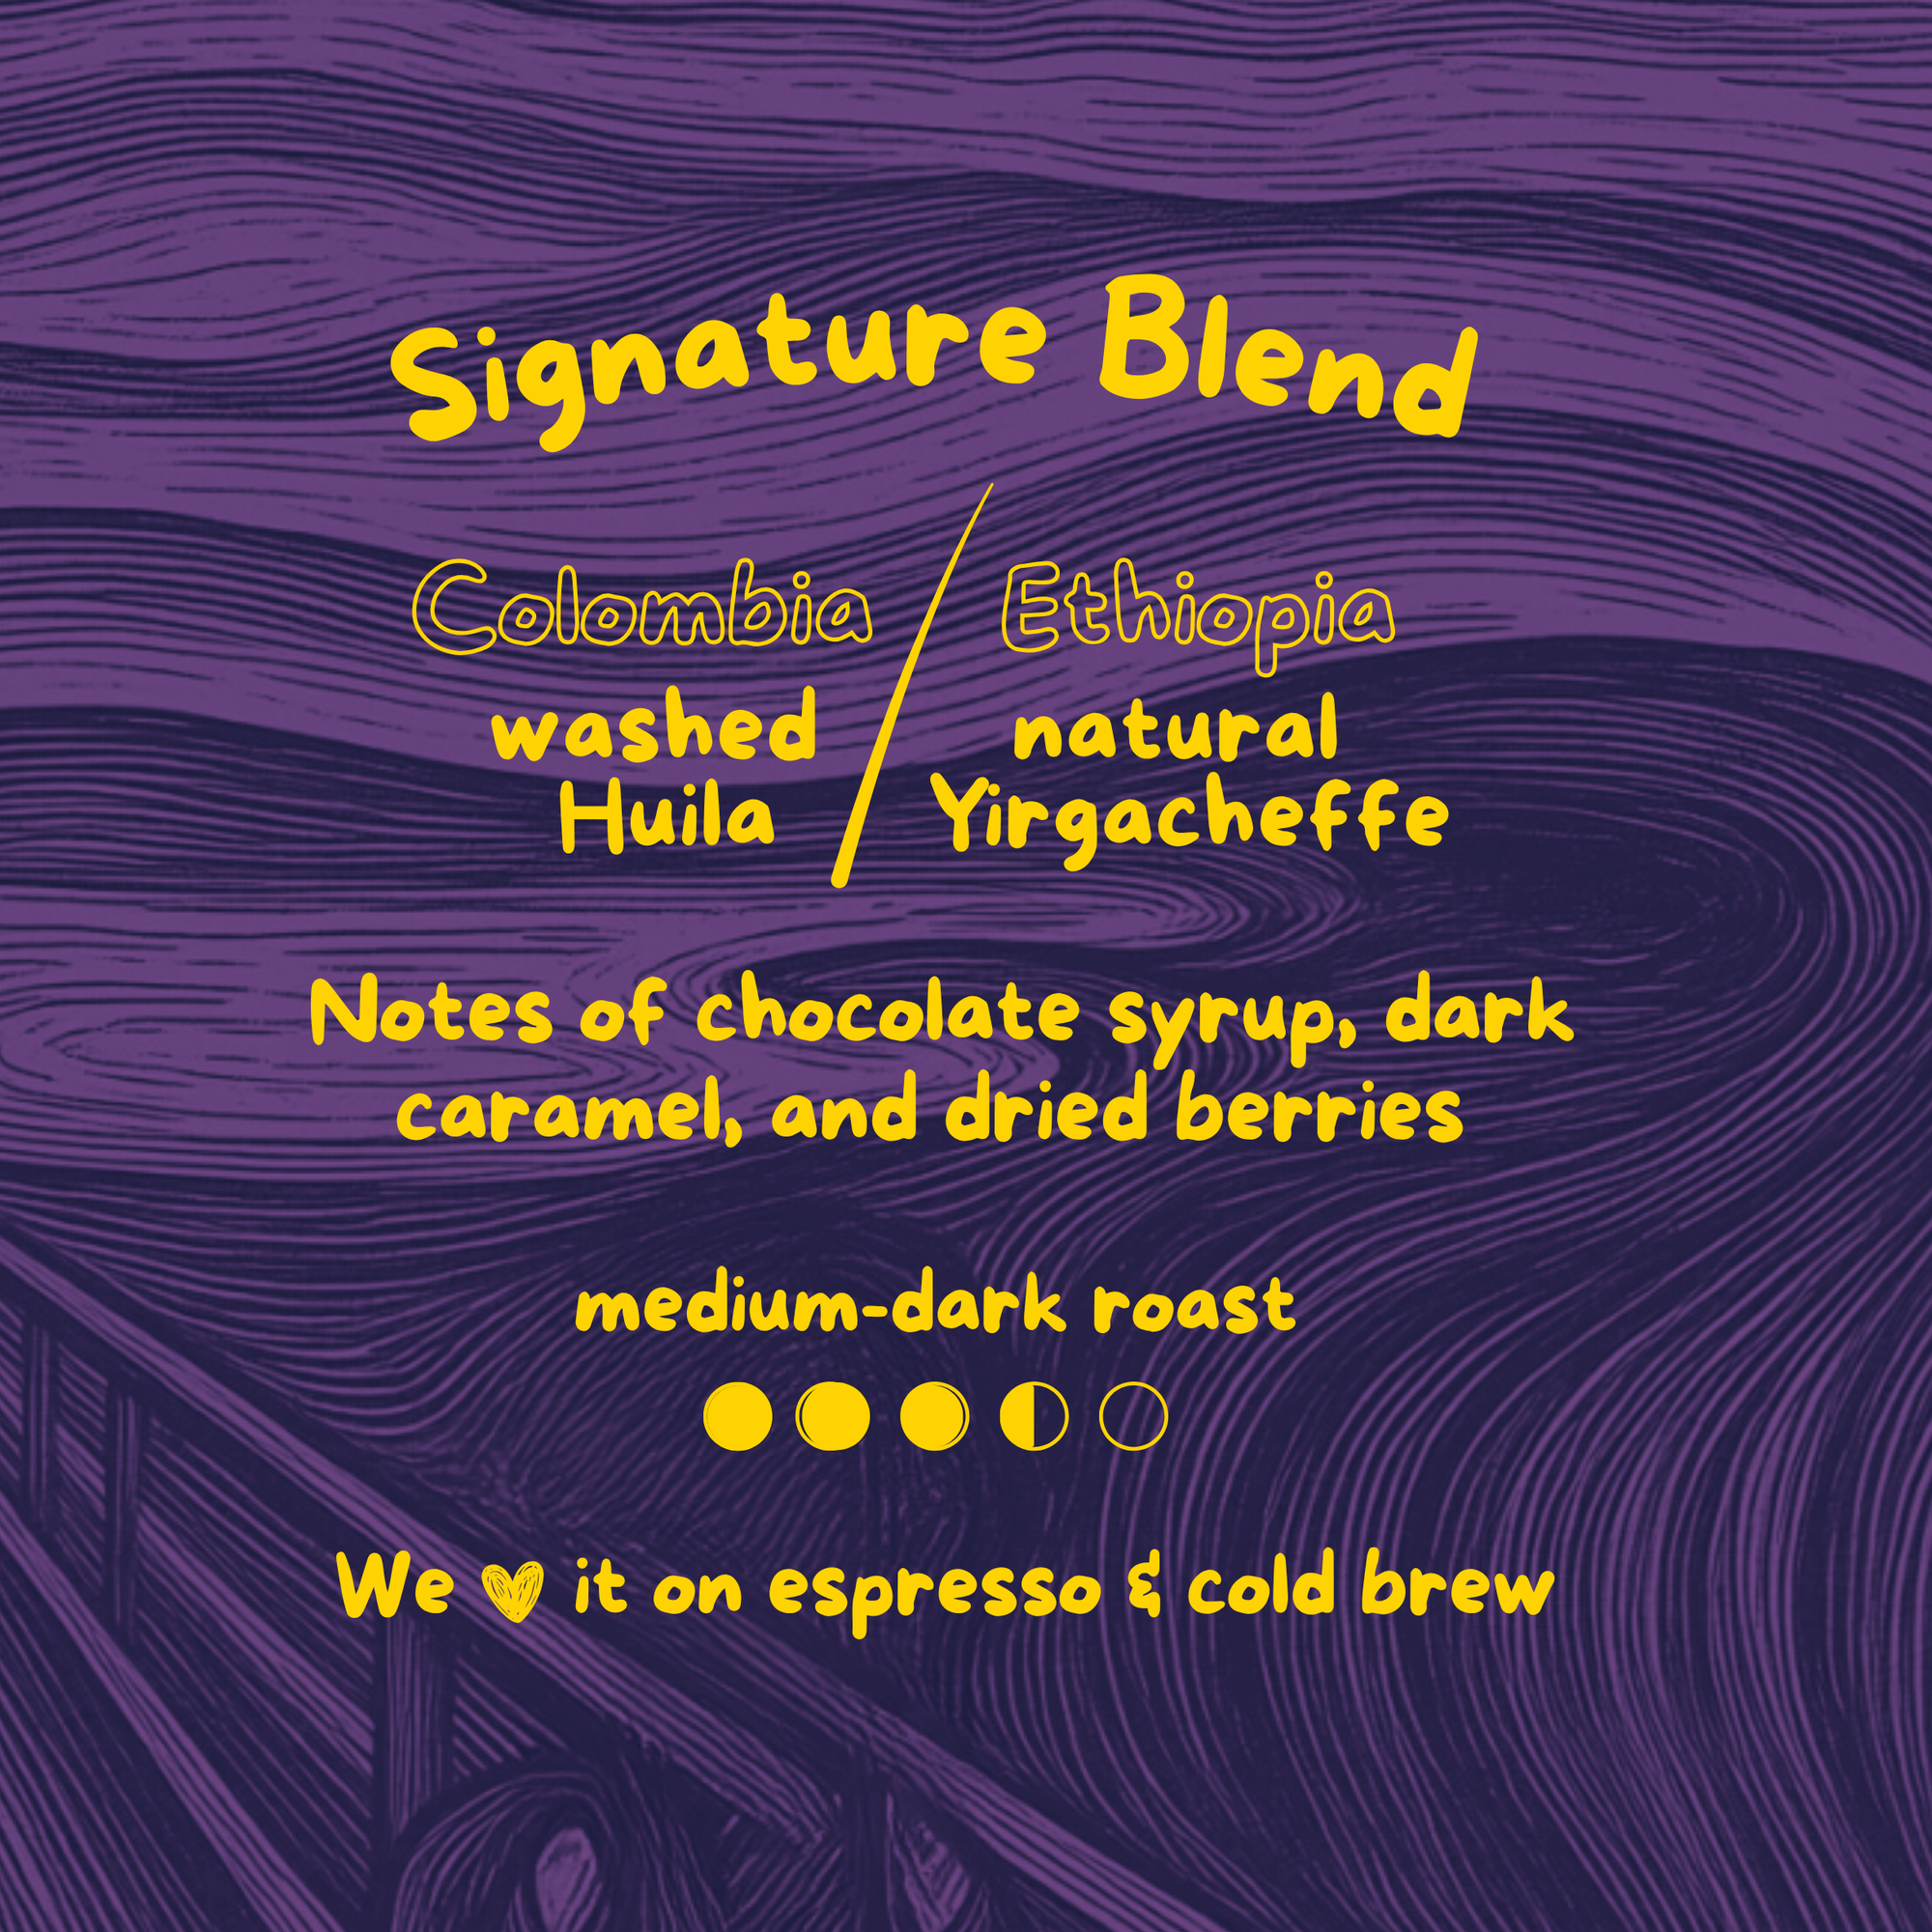 Signature Blend
Colombia / Ethiopia
washed natural
Huila Yirgacheffe
Notes of chocolate syrup, dark
caramel, and dried berries
medium-dark roast
We ♥ it on espresso & cold brew